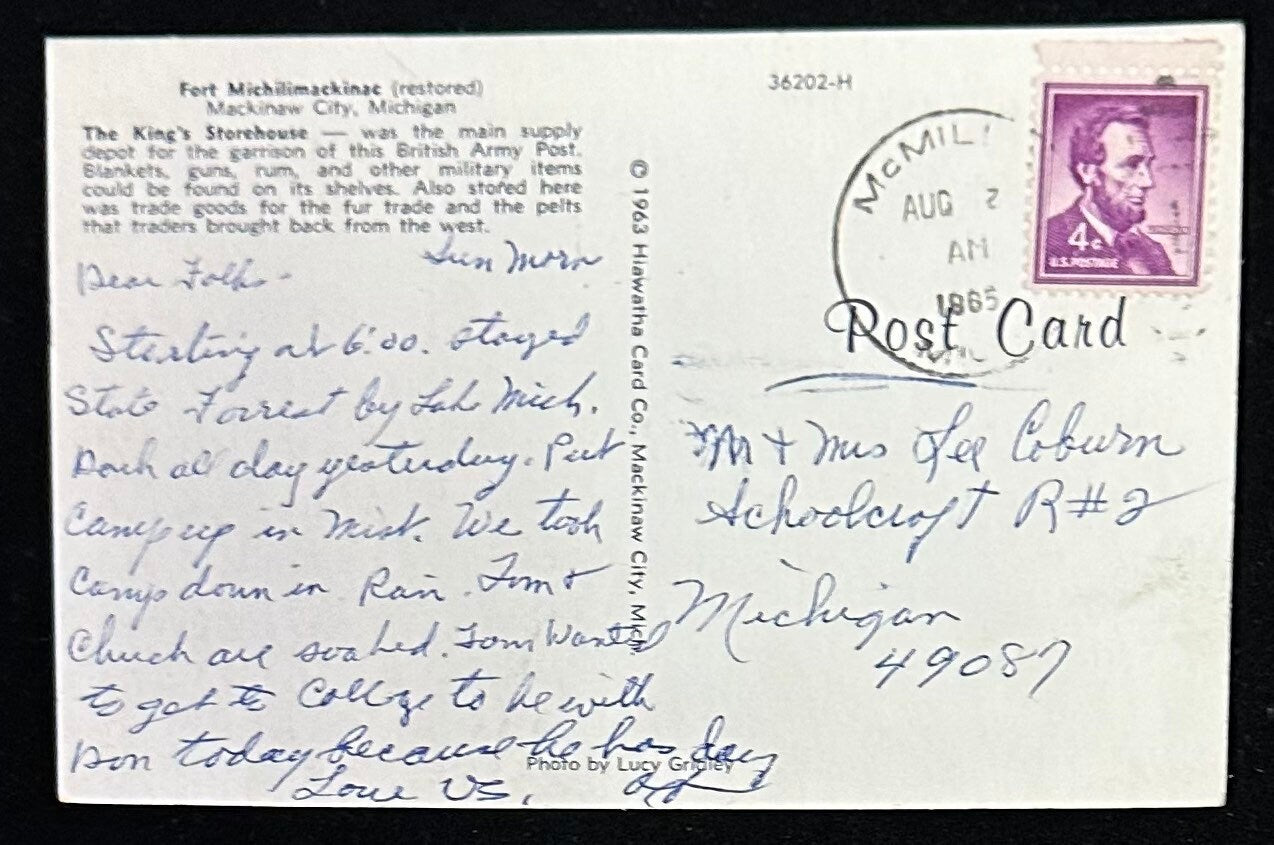 Fort Michilimackinac (restored)
Mackinaw City, Michigan
The King's Storehouse — was the main supply
depot for the garrison of this British Army Post.
Blankets, guns, rum, and other military items
could be found on its shelves. Also stored here
was trade goods for the fur trade and the pelts
that traders brought back from the west.
Sun Morn
Dear Folks -
Starting at 6:00. stayed
State Forrest by Lake Mich.
Dark all day yesterday. Put
Camp up in Mist. We took
Camp down in Rain. Tom +
Chuck are soaked. Tom Wanted
to get to College to be with
Don today because he has day
off
Love US,
Photo by Lucy Gridley
© 1963 Hiawatha Card Co., Mackinaw City, Mich.
36202-H
McMIL
AUG 2
AM
1965
4c
U.S. POSTAGE
Post Card
Mr + Mrs Lee Coburn
Schoolcraft R#2
Michigan
49087